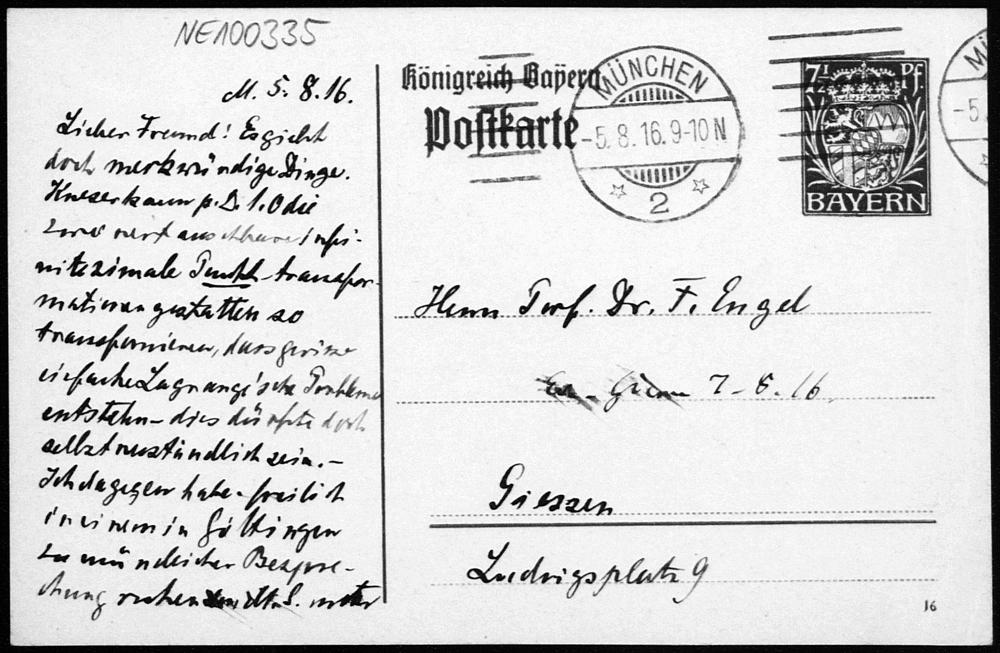 NE100335
M. 5. 8. 16.
Lieber Freund! Es giebt
doch merkwürdige Dinge.
Kneser kann p. D. 1. 0 die
zwei vertauschbare infi-
nitezimale Punkt-transfor-
mationen gestatten so
transformieren, dass gewisse
einfache Lagrange'sche Probleme
entstehn – dies dürfte doch
selbstverständlich sein. –
Ich dagegen habe – freilich
in einem in Göttingen
zu mündlicher Bespre-
chung ruhenden M.S. unter
Königreich Bayern
Postkarte
MÜNCHEN
-5.8.16.9-10 N
2
7½ Pf.
BAYERN
MÜ
-5.
Herrn Prof. Dr. F. Engel
7-8.16.
Giessen
Ludwigsplatz 9
16